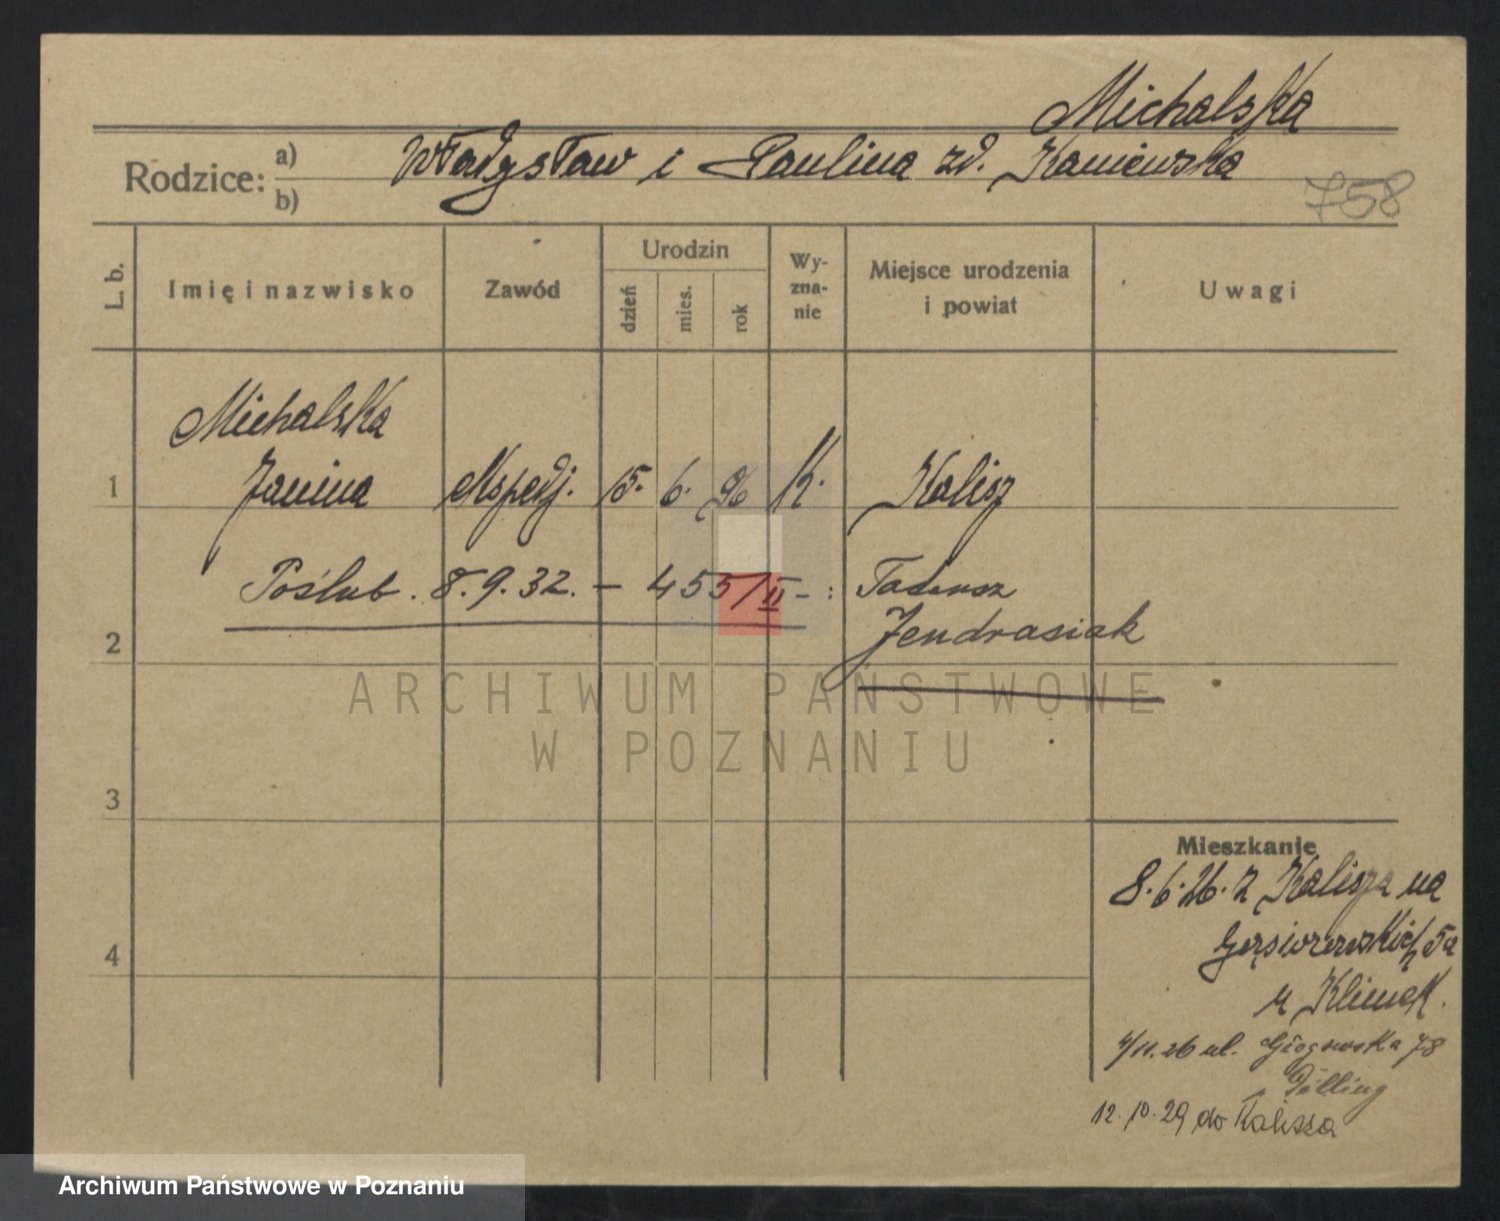 Michalska
Rodzice: a) b) Władysław i Paulina zd. Kaniewska
758
L. b. Imię i nazwisko Zawód Urodzin dzień mies. rok Wy-zna-nie Miejsce urodzenia i powiat Uwagi
Michalska
1 Janina Ekspedj. 15. 6. 96 K. Kalisz
Poślub. 8.9.32. – 455/II – : Tadeusz
2 Jendrasiak
ARCHIWUM PAŃSTWOWE
W POZNANIU
3
Mieszkanie
8.6.26. z Kalisza na
5a
4
u Klimek.
4/11.26 ul. Głogowska 78
Pilling
12.10.29 do Kalisza
Archiwum Państwowe w Poznaniu